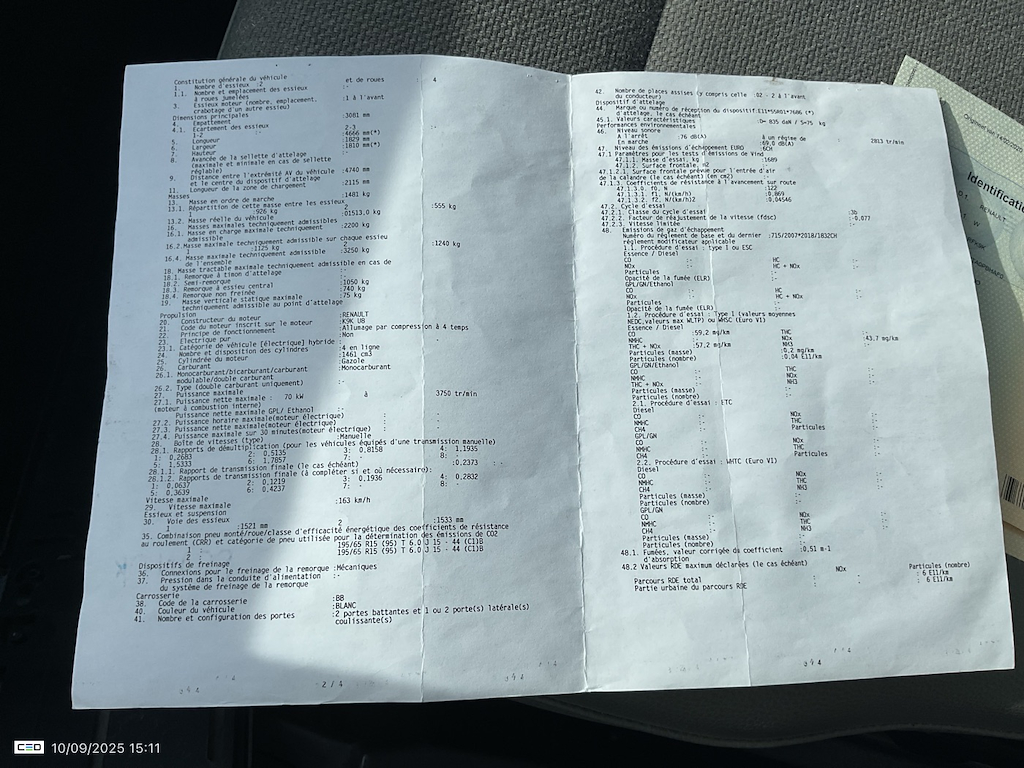 Constitution générale du véhicule
1. Nombre d'essieux :2 et de roues 4
1.1. Nombre et emplacement des essieux :-
à roues jumelées
3. Essieux moteur (nombre, emplacement, :1 à l'avant
crabotage d'un autre essieu)
Dimensions principales
4. Empattement :3081 mm
4.1. Ecartement des essieux
1-2 :- 2-3 :-
5. Longueur :4666 mm(*)
6. Largeur :1829 mm
7. Hauteur :1810 mm(*)
8. Avancée de la sellette d'attelage :-
(maximale et minimale en cas de sellette
réglable)
9. Distance entre l'extrémité AV du véhicule :4740 mm
et le centre du dispositif d'attelage
11. Longueur de la zone de chargement :2115 mm
Masses
13. Masse en ordre de marche :1481 kg
13.1. Répartition de cette masse entre les essieux
1 :926 kg 2 :555 kg
13.2. Masse réelle du véhicule :01513,0 kg
16. Masses maximales techniquement admissibles
16.1. Masse en charge maximale techniquement :2200 kg
admissible
16.2. Masse maximale techniquement admissible sur chaque essieu
1 :1125 kg 2 :1240 kg
16.4. Masse maximale techniquement :3250 kg
admissible de l'ensemble
18. Masse tractable maximale techniquement admissible en cas de
18.1. Remorque à timon d'attelage :-
18.2. Semi-remorque :-
18.3. Remorque à essieu central :1050 kg
18.4. Remorque non freinée :740 kg
19. Masse verticale statique maximale :75 kg
techniquement admissible au point d'attelage
Propulsion
20. Constructeur du moteur :RENAULT
21. Code du moteur inscrit sur le moteur :K9K U8
22. Principe de fonctionnement :Allumage par compression à 4 temps
23. Electrique pur :Non
23.1. Catégorie de véhicule [électrique] hybride :-
24. Nombre et disposition des cylindres :4 en ligne
25. Cylindrée du moteur :1461 cm3
26. Carburant :Gazole
26.1. Monocarburant/bicarburant/carburant :Monocarburant
modulable/double carburant
26.2. Type (double carburant uniquement) :-
27. Puissance maximale
27.1. Puissance nette maximale : 70 kW à 3750 tr/min
(moteur à combustion interne)
Puissance nette maximale GPL/ Ethanol :-
27.2. Puissance horaire maximale(moteur électrique) :
27.3. Puissance nette maximale(moteur électrique) :
27.4. Puissance maximale sur 30 minutes(moteur électrique) :
28. Boîte de vitesses (type) :Manuelle
28.1. Rapports de démultiplication (pour les véhicules équipés d'une transmission manuelle)
1: 0,2683 2: 0,5135 3: 0,8158 4: 1,1935
5: 1,5333 6: 1,7857 7: - 8: -
28.1.1. Rapport de transmission finale (le cas échéant) :0,2373 : -
28.1.2. Rapports de transmission finale (à compléter si et où nécessaire):
1: 0,0637 2: 0,1219 3: 0,1936 4: 0,2832
5: 0,3639 6: 0,4237 7: - 8: -
Vitesse maximale
29. Vitesse maximale :163 km/h
Essieux et suspension
30. Voie des essieux
1 :1521 mm 2 :1533 mm
35. Combinaison pneu monté/roue/classe d'efficacité énergétique des coefficients de résistance
au roulement (CRR) et catégorie de pneu utilisée pour la détermination des émissions de CO2
1 : 195/65 R15 (95) T 6.0 J 15 - 44 (C1)B
2 : 195/65 R15 (95) T 6.0 J 15 - 44 (C1)B
Dispositifs de freinage
36. Connexions pour le freinage de la remorque :Mécaniques
37. Pression dans la conduite d'alimentation :-
du système de freinage de la remorque
Carrosserie
38. Code de la carrosserie :BB
40. Couleur du véhicule :BLANC
41. Nombre et configuration des portes :2 portes battantes et 1 ou 2 porte(s) latérale(s)
coulissante(s)
2 / 4
42. Nombre de places assises (y compris celle :02 - 2 à l'avant
du conducteur)
Dispositif d'attelage
44. Marque ou numéro de réception du dispositif:E11*55R01*7686 (*)
d'attelage, le cas échéant
45.1. Valeurs caractéristiques :D= 835 daN / S=75 kg
Performances environnementales
46. Niveau sonore
A l'arrêt :76 dB(A) à un régime de 2813 tr/min
En marche :69.0 dB(A)
47. Niveau des émissions d'échappement EURO :6CH
47.1 Paramètres pour les tests d'émissions de Vind
47.1.1. Masse d'essai, kg :1689
47.1.2. Surface frontale, m2 :-
47.1.2.1. Surface frontale prévue pour l'entrée d'air
de la calandre (le cas échéant) (en cm2) :-
47.1.3. Coefficients de résistance à l'avancement sur route
47.1.3.0. f0, N :122
47.1.3.1. f1, N/(km/h) :0,869
47.1.3.2. f2, N/(km/h)2 :0,04546
47.2. Cycle d'essai
47.2.1. Classe du cycle d'essai :3b
47.2.2. Facteur de réajustement de la vitesse (fdsc) :-0,077
47.2.3. Vitesse limitée :-
48. Emissions de gaz d'échappement
Numéro du règlement de base et du dernier :715/2007*2018/1832CH
règlement modificateur applicable
1.1. Procédure d'essai : type 1 ou ESC
Essence / Diesel
CO :- HC :-
NOx :- HC + NOx :-
Particules :-
Opacité de la fumée (ELR) :-
GPL/GN/Ethanol
CO :- HC :-
NOx :- HC + NOx :-
Particules :-
Opacité de la fumée (ELR) :-
1.2. Procédure d'essai : Type I (valeurs moyennes
NEDC,valeurs max WLTP) ou WHSC (Euro VI)
Essence / Diesel
CO :59,2 mg/km THC :-
NMHC :- NOx :43,7 mg/km
THC + NOx :57,2 mg/km NH3 :-
Particules (masse) :0,2 mg/km
Particules (nombre) :0,04 E11/km
GPL/GN/Ethanol
CO :- THC :-
NMHC :- NOx :-
THC + NOx :- NH3 :-
Particules (masse) :-
Particules (nombre) :-
2.1. Procédure d'essai : ETC
Diesel
CO :- NOx :-
NMHC :- THC :-
CH4 :- Particules :-
GPL/GN
CO :- NOx :-
NMHC :- THC :-
CH4 :- Particules :-
2.2. Procédure d'essai : WHTC (Euro VI)
Diesel
CO :- NOx :-
NMHC :- THC :-
CH4 :- NH3 :-
Particules (masse) :-
Particules (nombre) :-
GPL/GN
CO :- NOx :-
NMHC :- THC :-
CH4 :- NH3 :-
Particules (masse) :-
Particules (nombre) :-
48.1. Fumées, valeur corrigée du coefficient :0,51 m-1
d'absorption
48.2 Valeurs RDE maximum déclarées (le cas échéant)
NOx Particules (nombre)
Parcours RDE total : : 6 E11/km
Partie urbaine du parcours RDE : : 6 E11/km
Identification
RENAULT
CEO 10/09/2025 15:11